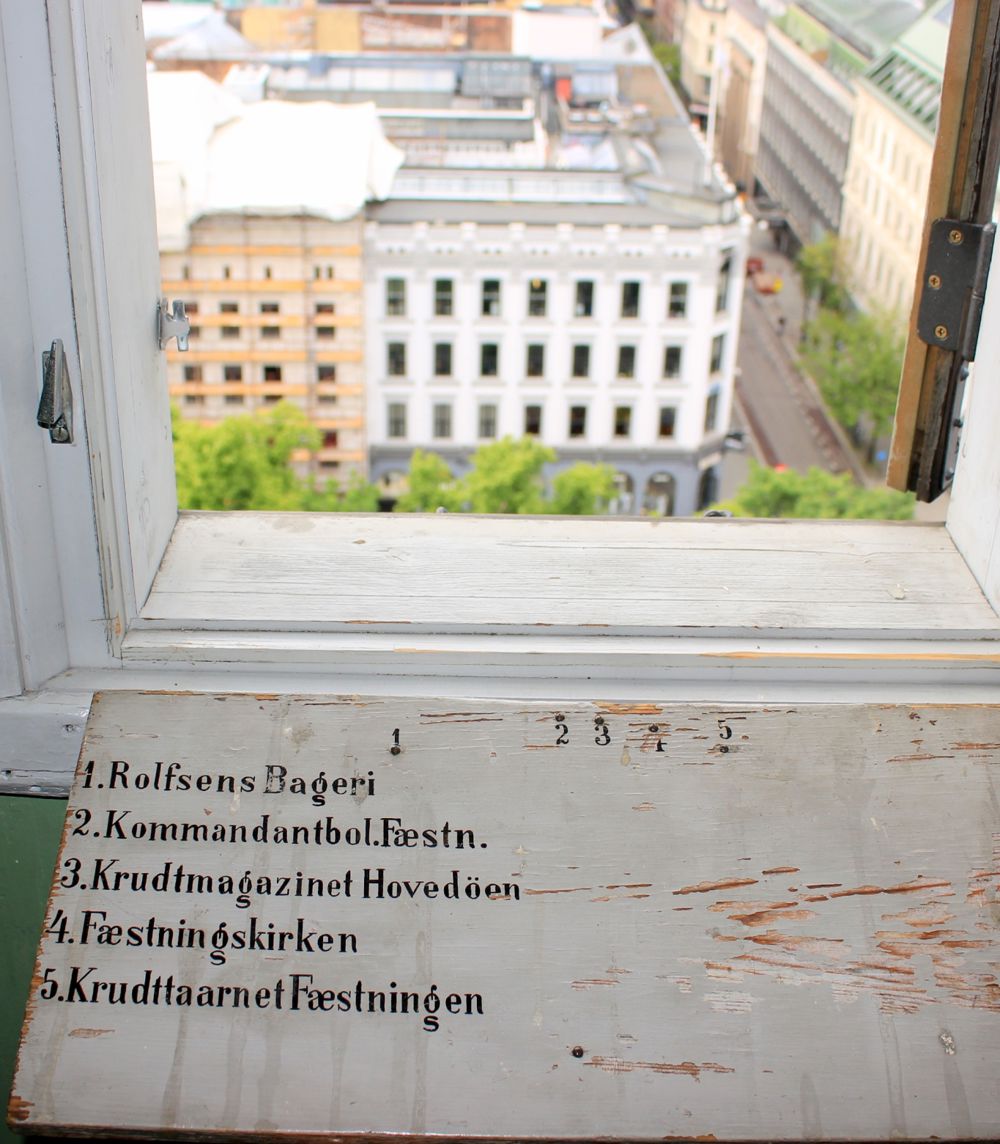 1 2 3 4 5
1. Rolfsens Bageri
2. Kommandantbol. Fæstn.
3. Krudtmagazinet Hovedöen
4. Fæstningskirken
5. Krudttaarnet Fæstningen